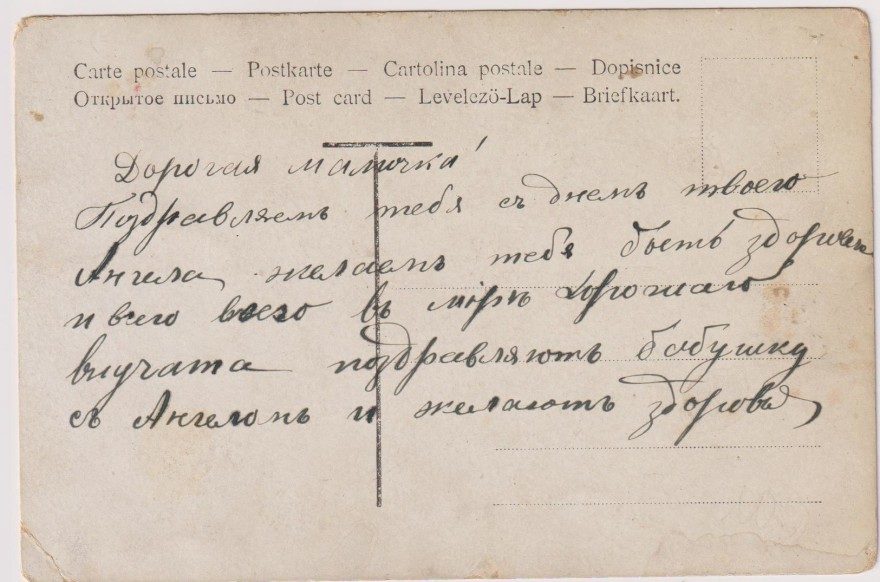 Carte postale — Postkarte — Cartolina postale — Dopisnice
Открытое письмо — Post card — Levelező-Lap — Briefkaart.
Дорогая мамочка!
Поздравляемъ тебя съ днемъ твоего
Ангела, желаемъ тебя быть здоровой
и всего всего въ мiрѣ хорошаго
внучата поздравляютъ бабушку
съ Ангеломъ и желаютъ здоровья,